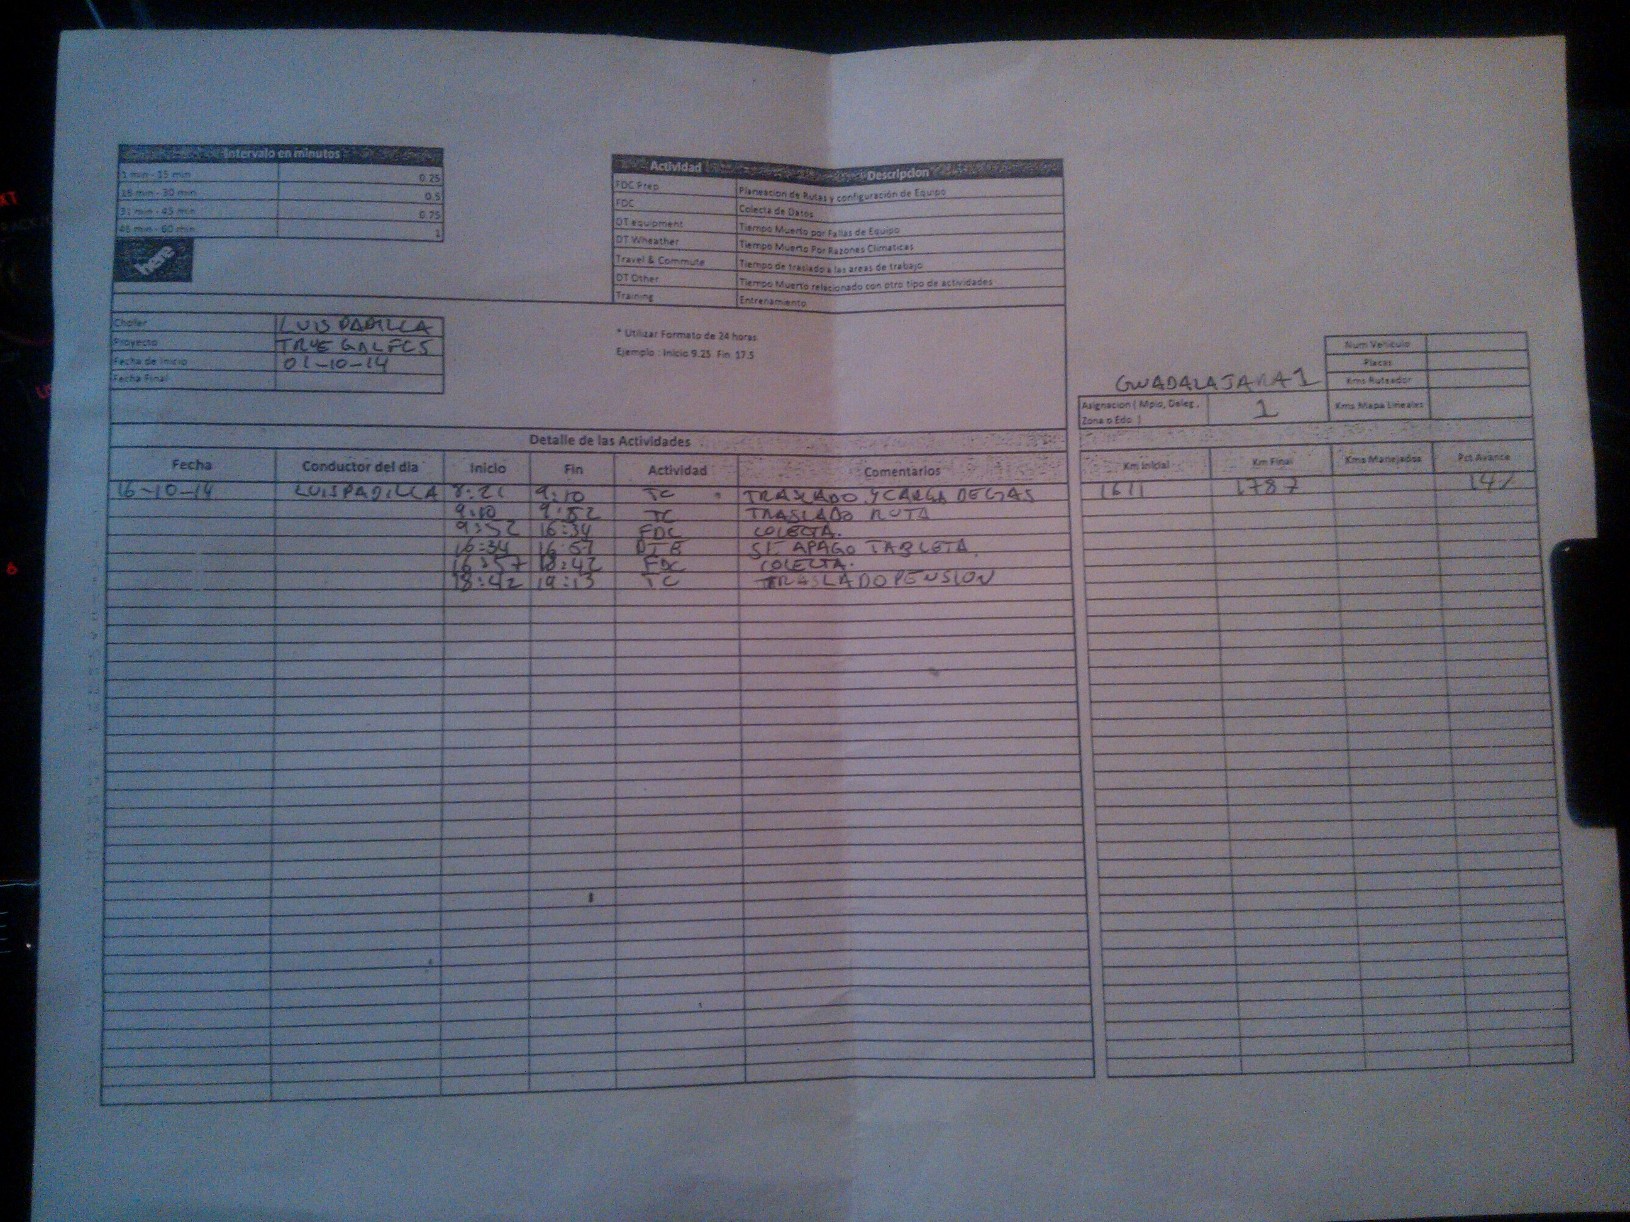 Intervalo en minutos
1 min - 15 min 0.25
16 min - 30 min 0.5
31 min - 45 min 0.75
46 min - 60 min 1
here
Actividad Descripcion
FDC Prep Planeacion de Rutas y configuración de Equipo
FDC Colecta de Datos
DT equipment Tiempo Muerto por Fallas de Equipo
DT Wheather Tiempo Muerto Por Razones Climaticas
Travel & Commute Tiempo de traslado a las areas de trabajo
DT Other Tiempo Muerto relacionado con otro tipo de actividades
Training Entrenamiento
Chofer LUIS PADILLA
Proyecto TRUE GAL FCS
Fecha de Inicio 01-10-14
Fecha Final
* Utilizar Formato de 24 horas
Ejemplo : Inicio 9.25 Fin 17.5
Num Vehiculo
Placas
GUADALAJARA 1 Kms Ruteador
Asignacion ( Mpio, Deleg , Zona o Edo ) 1 Kms Mapa Lineales
Detalle de las Actividades
Fecha Conductor del dia Inicio Fin Actividad Comentarios Km Inicial Km Final Kms Manejados Pct Avance
16-10-14 LUIS PADILLA 8:21 9:10 TC TRASLADO Y CARGA DE GAS 1611 1787 14%
9:10 9:52 TC TRASLADO RUTA
9:52 16:34 FDC COLECTA.
16:34 16:57 DTE SE APAGO TABLETA.
16:57 18:42 FDC COLECTA.
18:42 19:13 TC TRASLADO PENSION